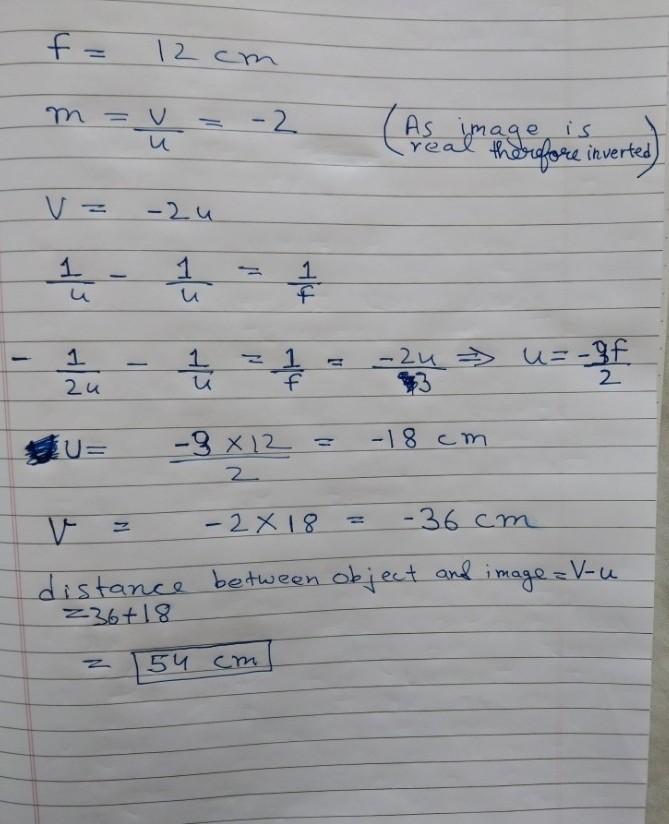 f = 12 cm
m = v/u = -2 (As image is real therefore inverted)
V = -2u
1/u - 1/u = 1/f
- 1/2u - 1/u = 1/f = -2u/3 ⇒ u = -3f/2
U = -3 × 12/2 = -18 cm
V = -2 × 18 = -36 cm
distance between object and image = V-u
= 36+18
= 54 cm